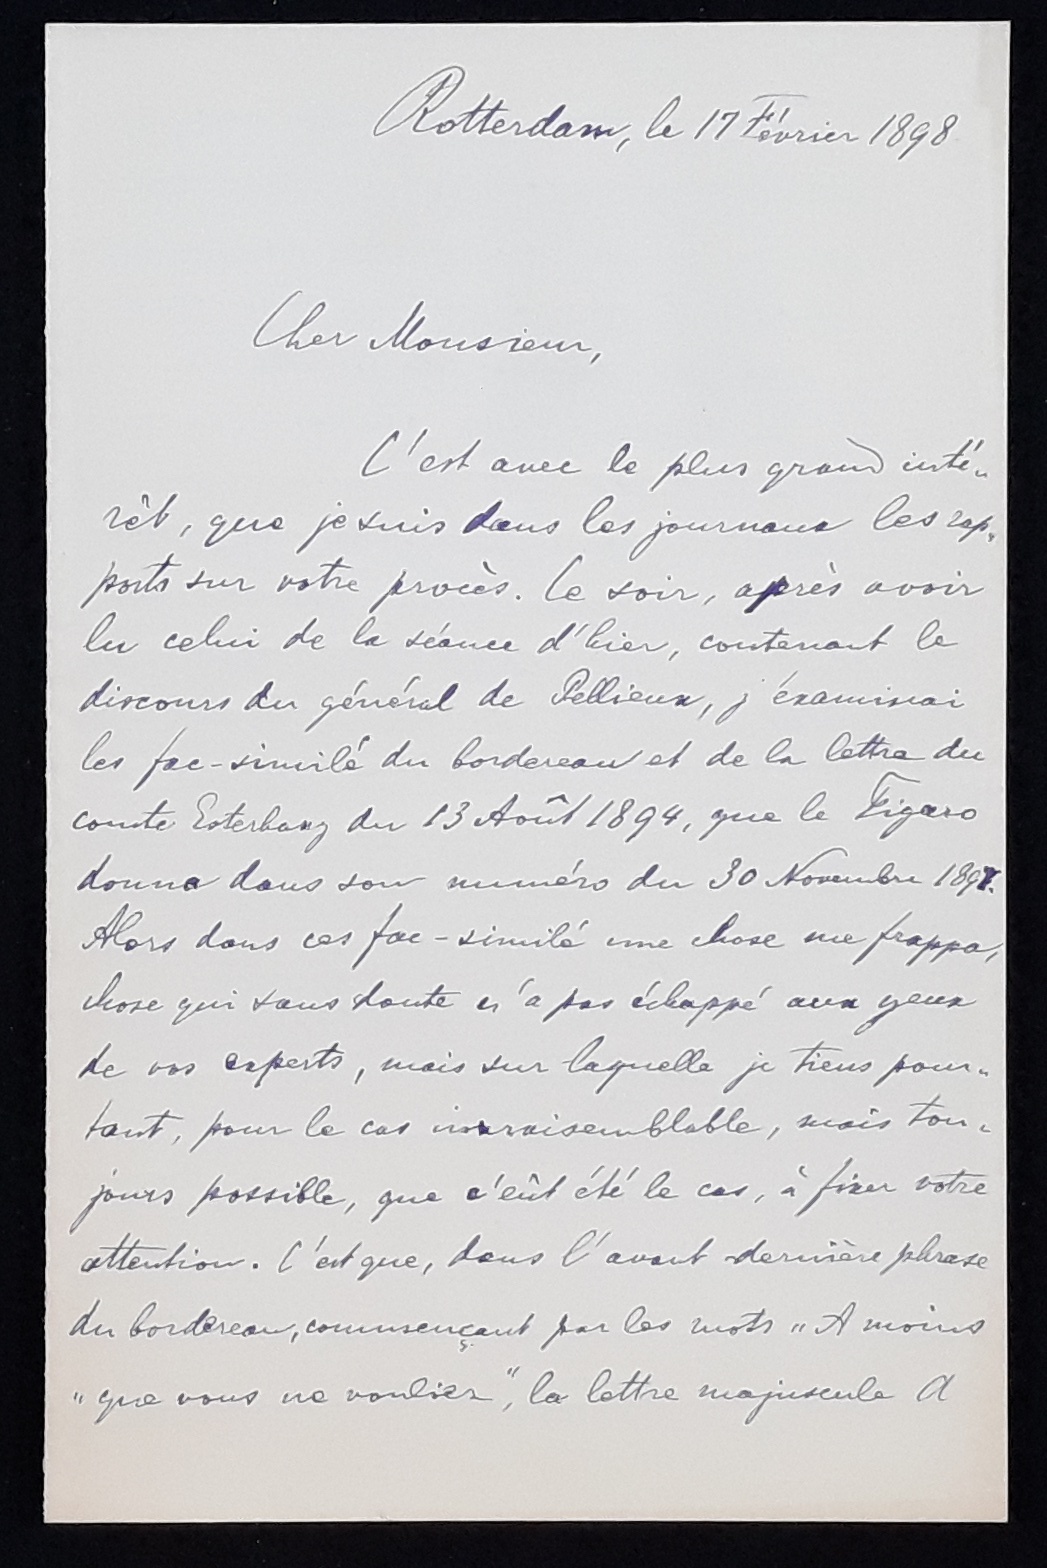 Rotterdam, le 17 Février 1898
Cher Monsieur,
C'est avec le plus grand inté-
rêt, que je suis dans les journaux les rap-
ports sur votre procès. Ce soir, après avoir
lu celui de la séance d'hier, contenant le
discours du général de Pellieux, j'éxaminai
les fac-similé du bordereau et de la lettre du
comte Esterhazy du 13 Août 1894, que le Figaro
donna dans son numéro du 30 Novembre 1897.
Alors dans ces fac-similé une chose me frappa,
chose qui sans doute n'a pas échappé aux yeux
de vos experts, mais sur laquelle je tiens pour-
tant, pour le cas invraisemblable, mais tou-
jours possible, que c'eût été le cas, à fixer votre
attention. C'est que, dans l'avant-dernière phrase
du bordereau, commençant par les mots „A moins
„que vous ne vouliez", la lettre majuscule A